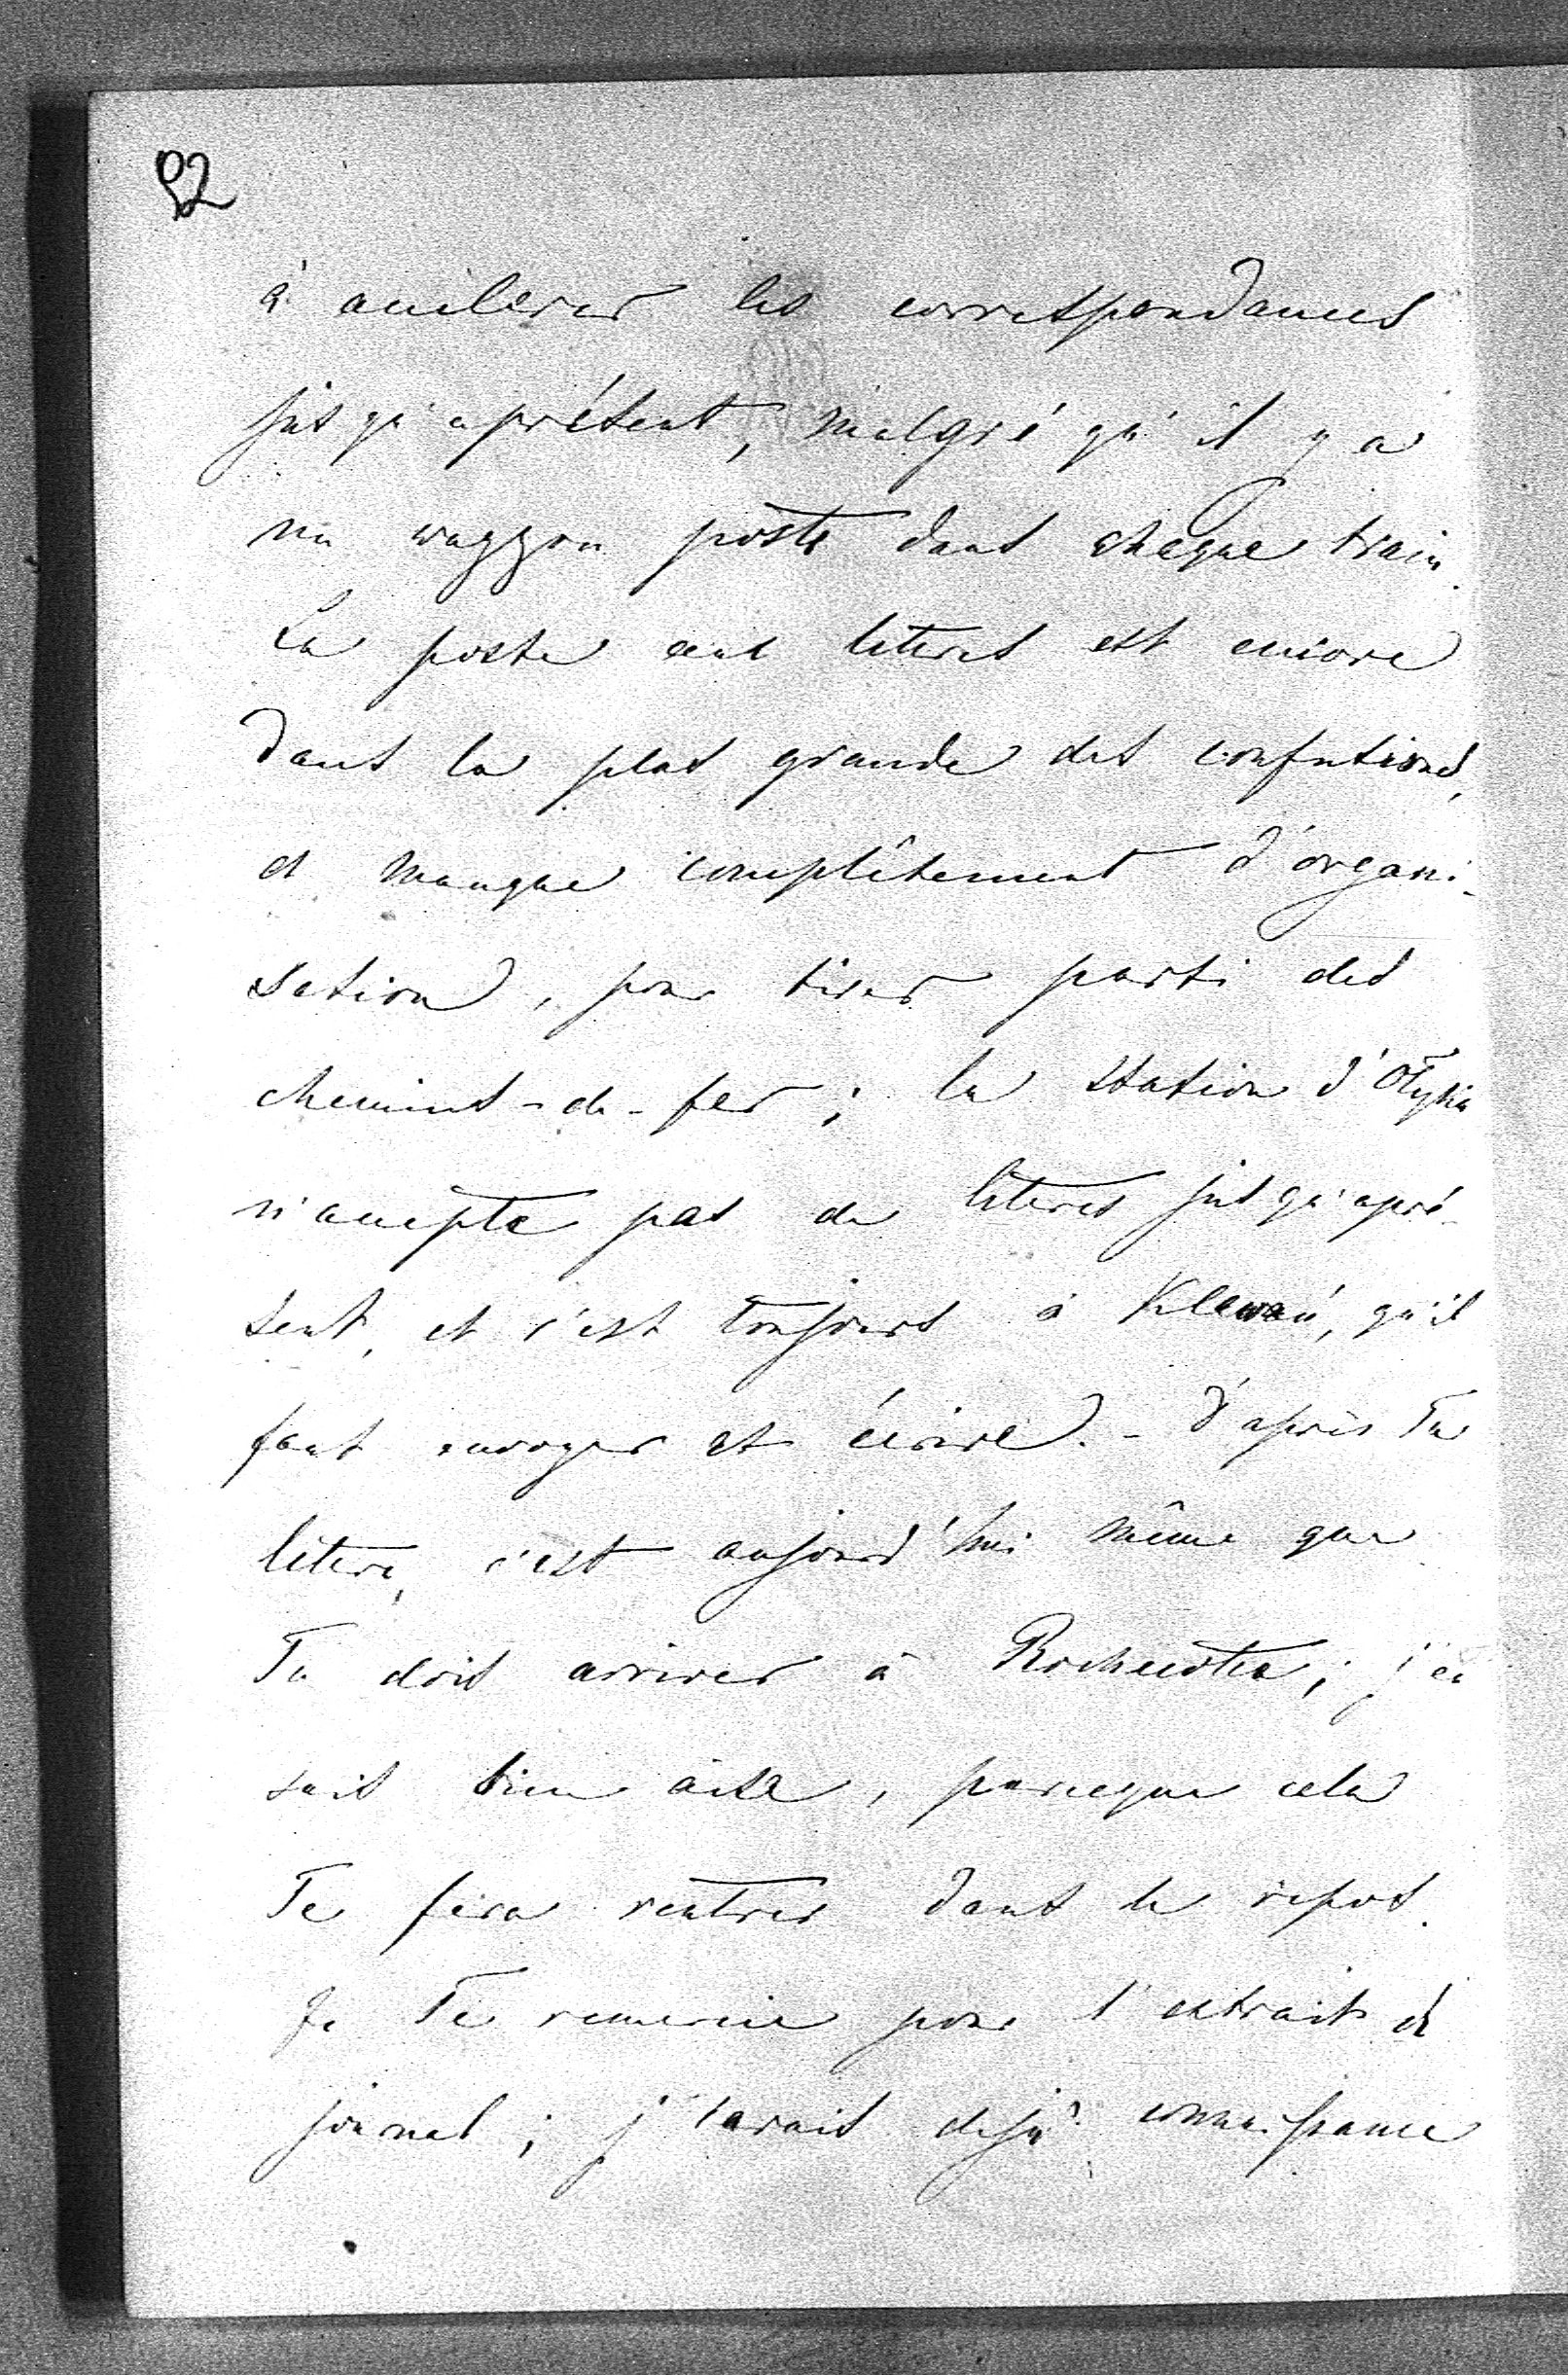 92
à accilerer les correspondances
jusqu'aprésent, malgré qu'il y a
un waggon poste dans chaque train.
La poste aus leteres est encore
dans la plus grande des confusions,
et manque complêtement d'organi-
sation, pour tirer parti des
chemins-de-fer; la station d'Ołyka
n'accepte pas de leteres jusqu'apré-
sent, et c'est toujours à Klewań, qu'il
faut envoyer et écrire. - d'après Ta
letere, c'est aujourd'hui même que
Tu dois arriver à Rochecotte; j'en
suis bien aise, parceque cela
Te fera rentrer dans le repos.
Je Te remercie pour l'extrait de
journal; j'avais dejà connaissance